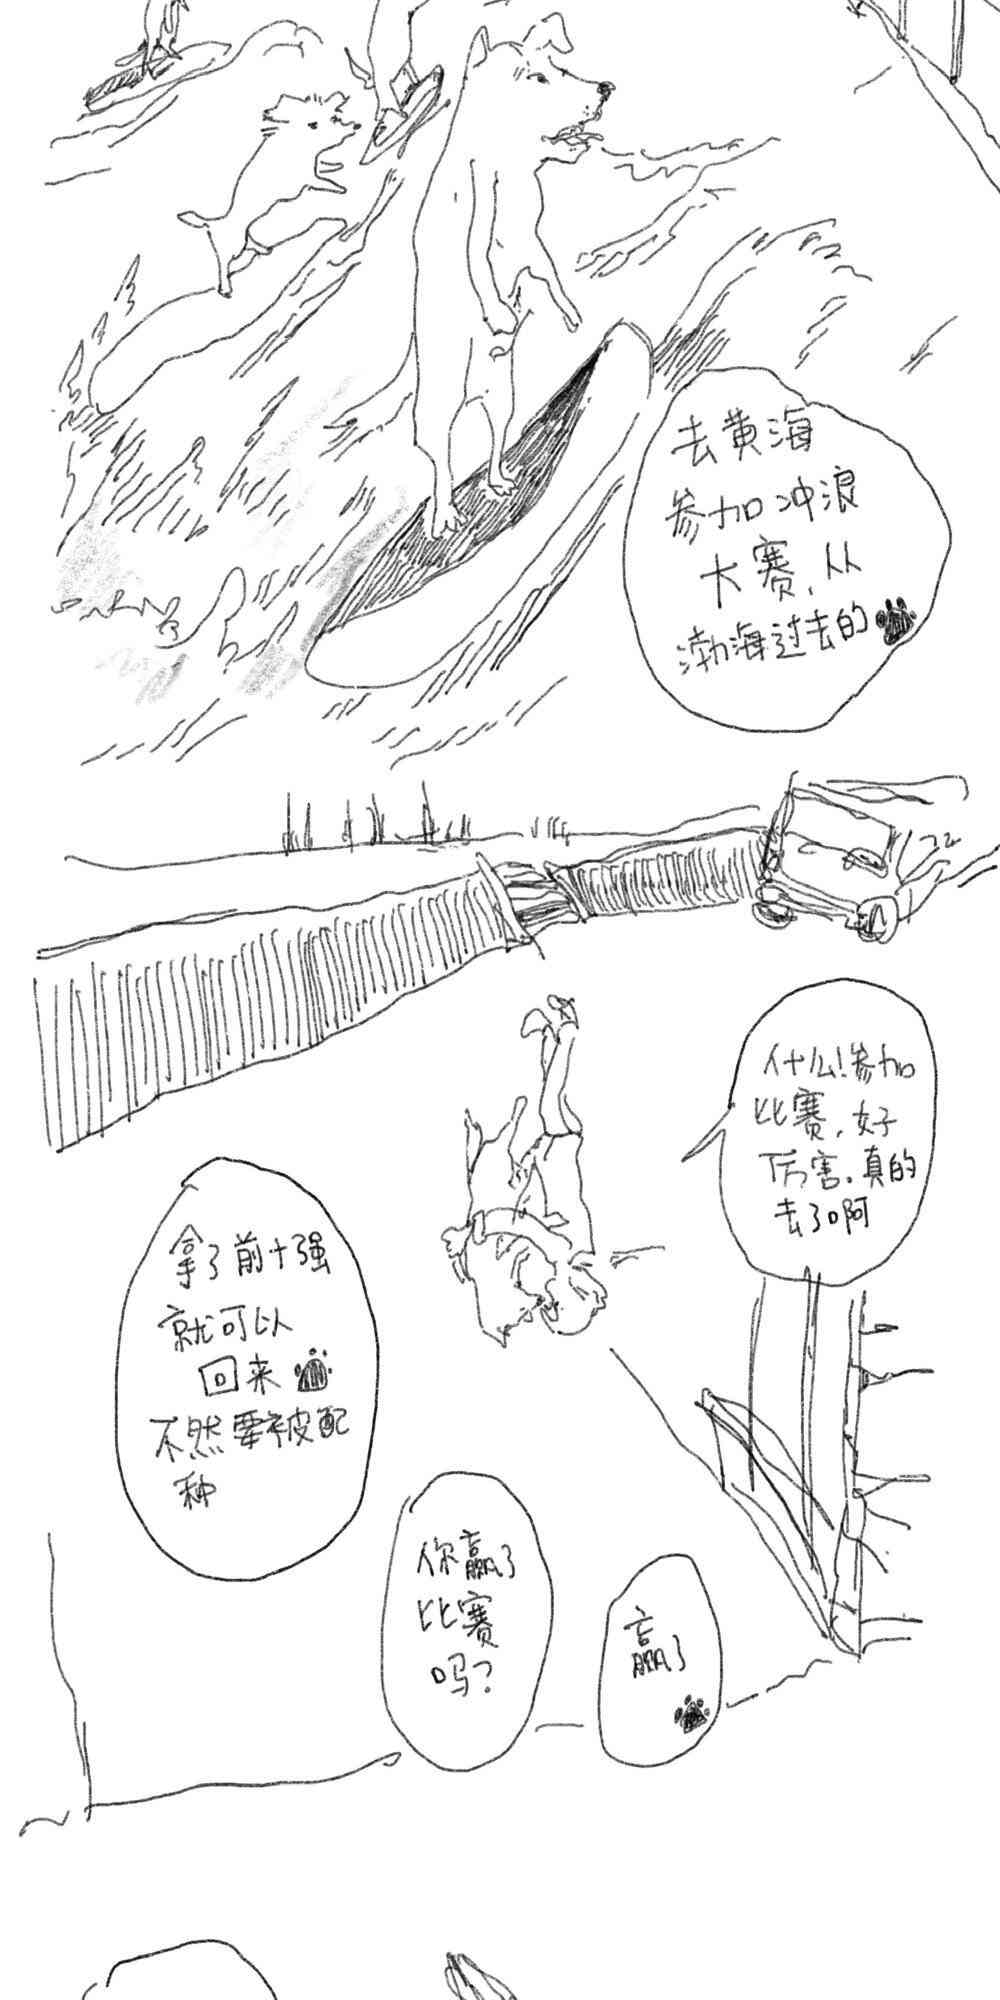 去黄海
参加冲浪
大赛,从
渤海过去的
什么!参加
比赛,好
厉害。真的
去了啊
拿了前十强
就可以
回来
不然要被配
种
你赢了
比赛
吗?
赢了